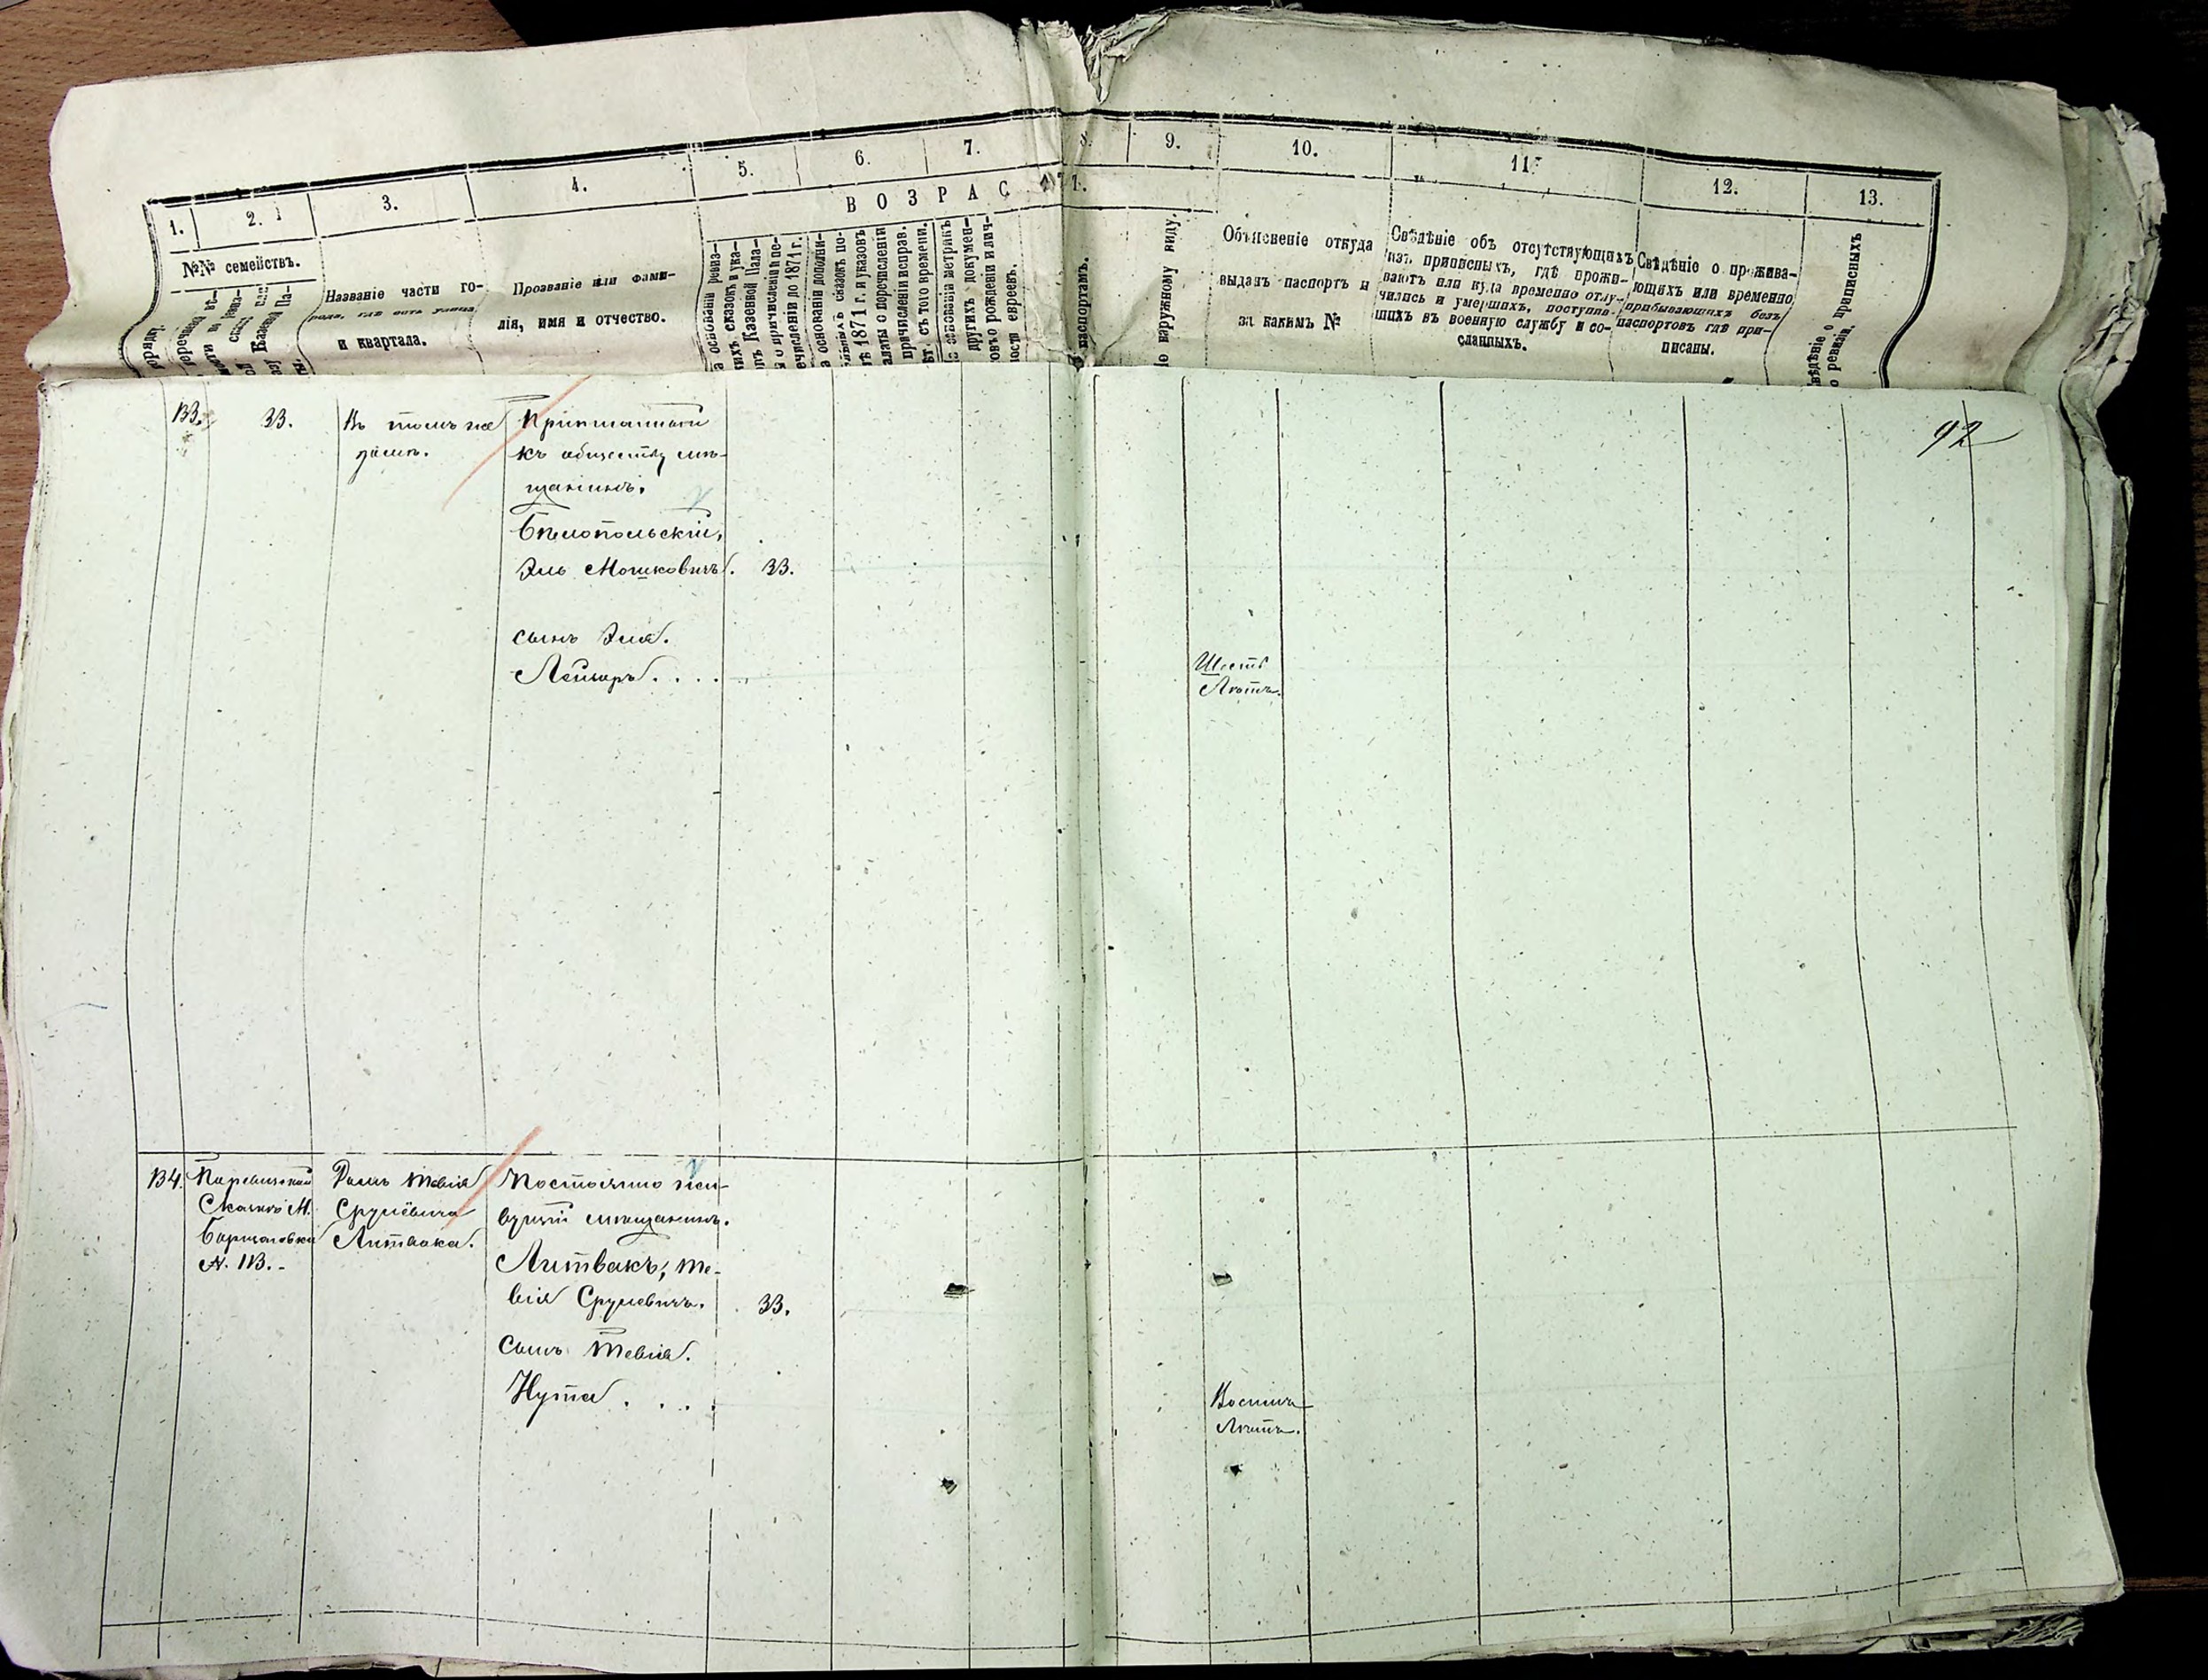 1.
2.
3.
4.
5.
6.
7.
8.
9.
10.
11.
12.
13.
ВОЗРАСТ
№№ семействъ.
Названіе части го-
рода, гдѣ есть улица
и квартала.
Прозваніе или фами-
лія, имя и отчество.
а основаніи ревиз-
кихъ сказокъ и ука-
Казенной Пала-
о причисленіи и пе-
ечисленіи до 1871 г.
а основаніи дополни-
сказокъ по-
1871 г. и указовъ
алаты о перечисленіи
причисленіи исправ.
съ того времени.
основаніи метрикъ
другихъ докумен-
овъ о рожденіи и лич-
ности евреевъ.
паспортамъ.
по наружному виду.
Объясненіе откуда
выданъ паспортъ и
за какимъ №
Свѣдѣніе объ отсутствующихъ
изъ приписныхъ, гдѣ прожи-
ваютъ или куда временно отлу-
чились и умершихъ, поступив-
шихъ въ военную службу и со-
сланныхъ.
Свѣдѣніе о прожива-
ющихъ или временно
прибывающихъ безъ
паспортовъ гдѣ при-
писаны.
Свѣдѣніе о приписныхъ
по ревизіи.
92
133.
33.
Въ томъ же
домѣ.
Приписанный
къ обществу мѣ-
щанинъ.
Бѣлопольскій,
Эль Мошковичъ. 33.
сынъ Эля.
Лейзоръ. . . .
Шесть
Лѣтъ.
134.
Сказкѣ М.
Борщаговки
№. 113.
Домъ Тевія
Срулёвича
Литвака.
Постоянно жи-
вущій мѣщанинъ.
Литвакъ, Те-
вія Срулевичъ. 33.
сынъ Тевія.
Нута . . . .
Восемь
Лѣтъ.